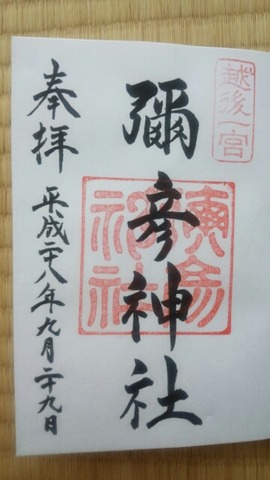 越後一宮
彌彦神社
奉拝
平成二十八年九月二十九日